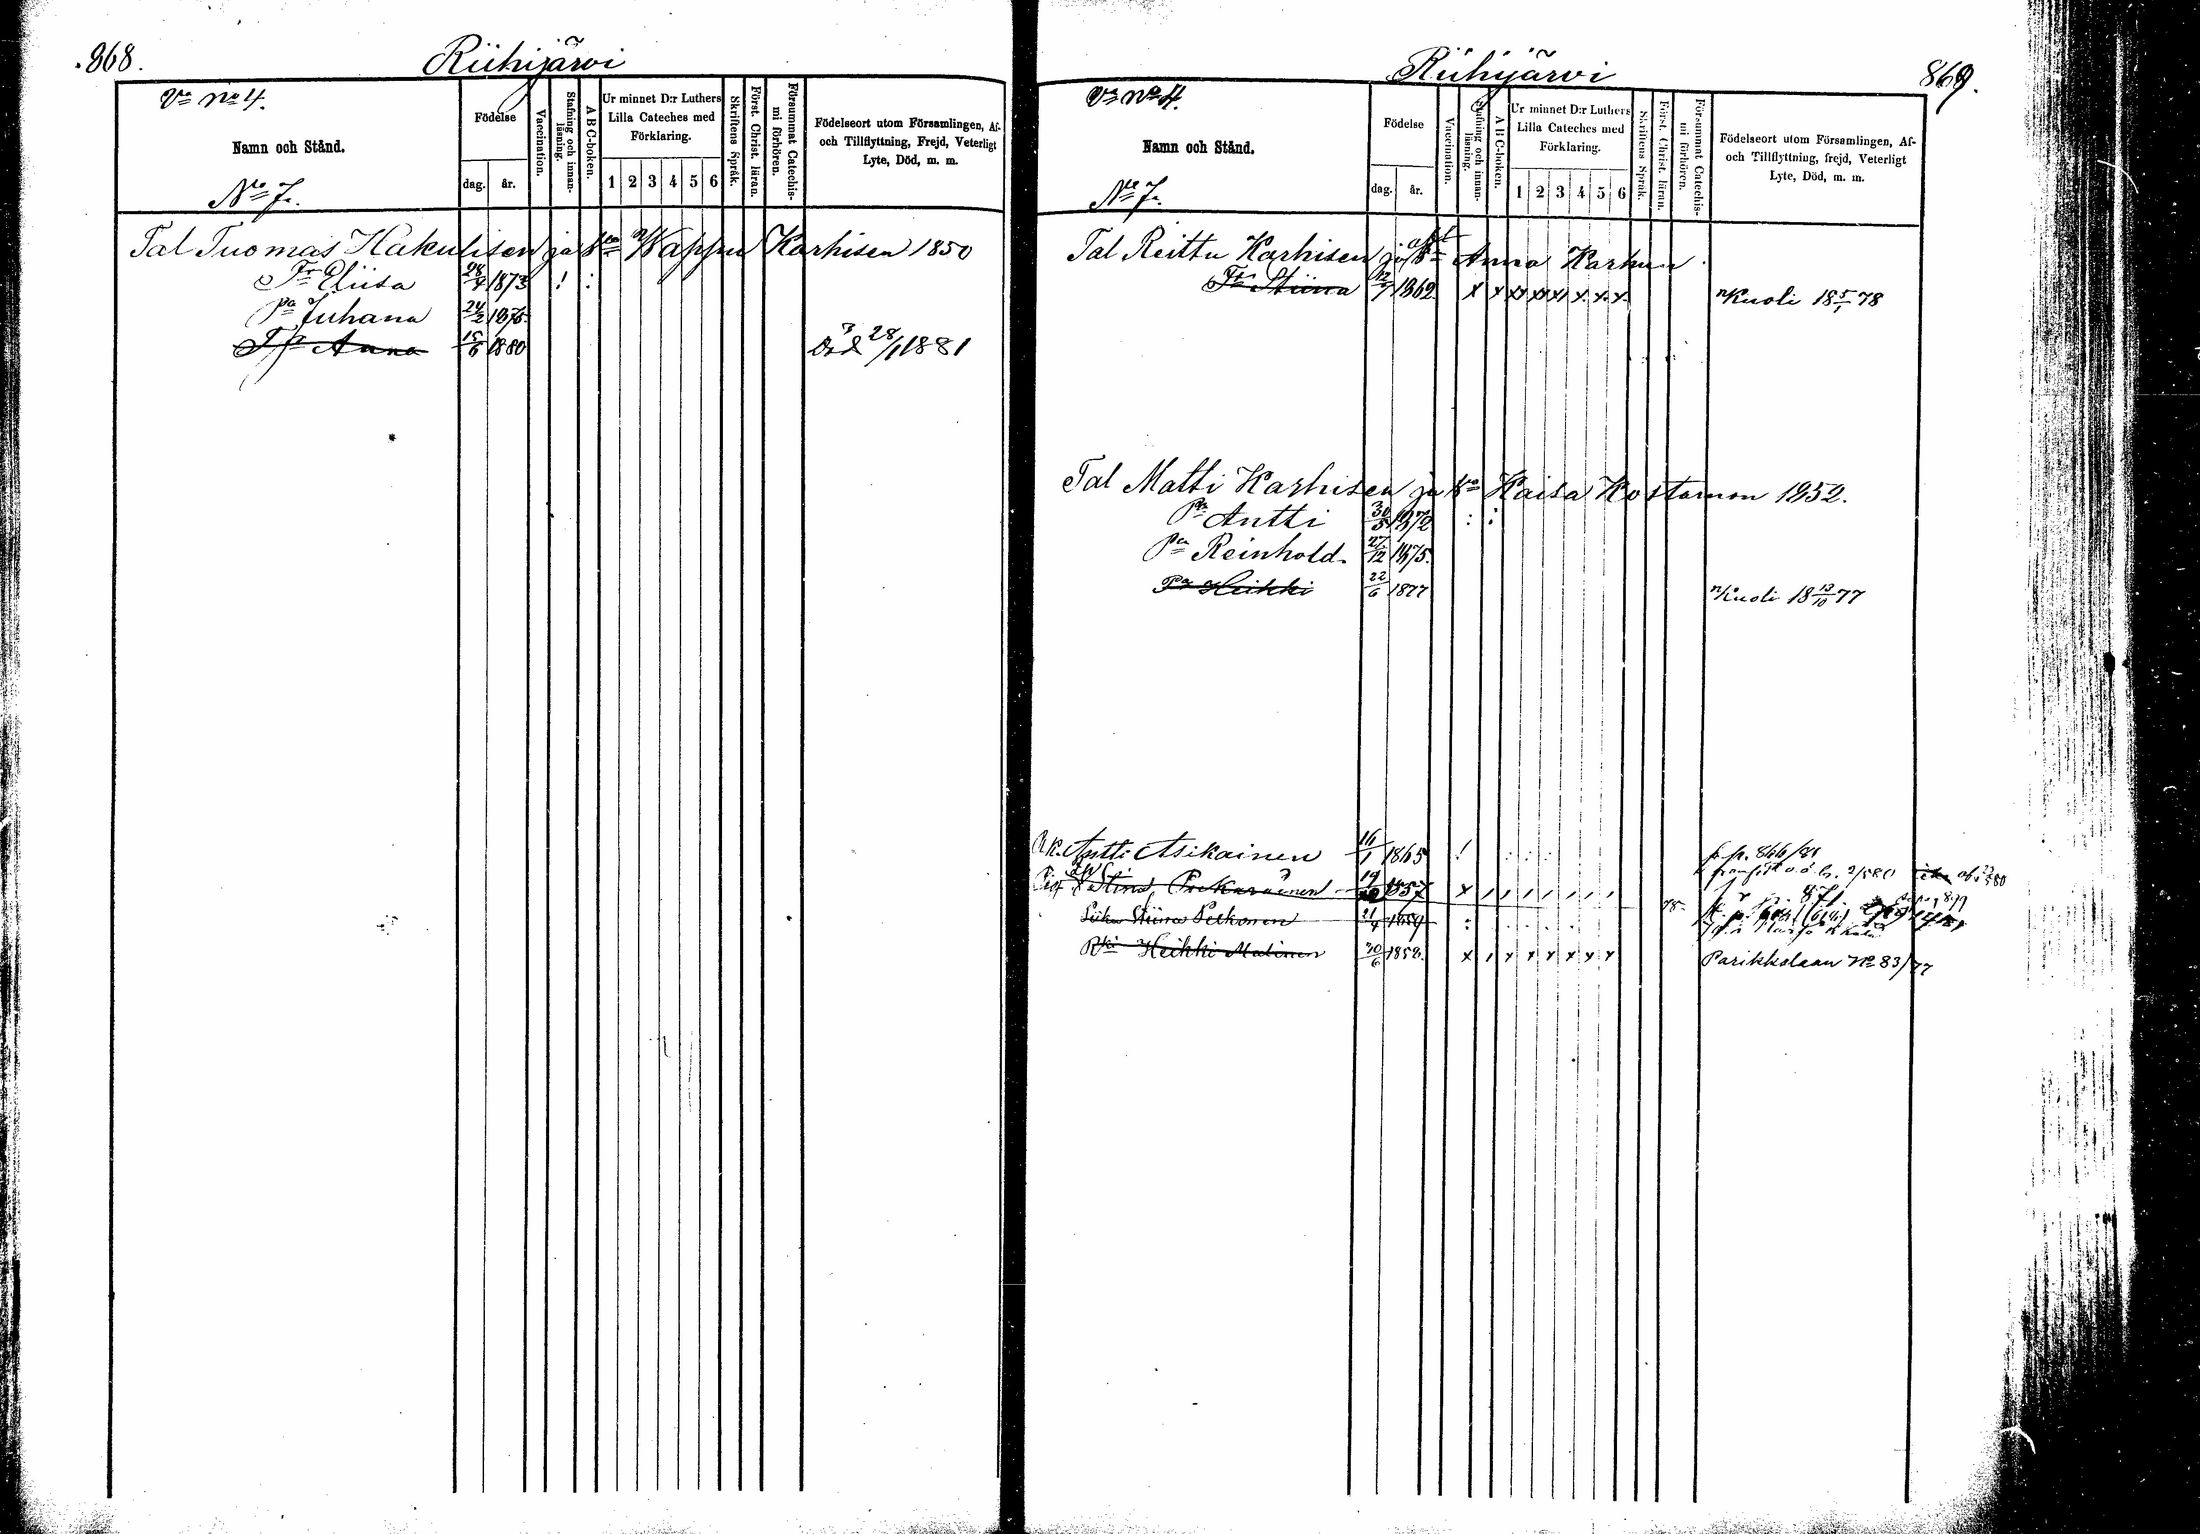 868.
Riihijärvi
Vn No 4.
Namn och Stånd.
No 7.
Födelse
dag.
år.
Vaccination.
Stafning och innanläsning.
A B C-boken.
Ur minnet D:r Luthers Lilla Cateches med Förklaring.
1 2 3 4 5 6
Skriftens Språk.
Först. Christ. läran.
Försummat Catechismi förhören.
Födelseort utom Församlingen, Af- och Tillflyttning, Frejd, Veterligt Lyte, Död, m. m.
Tal Tuomas Hakulisen ja Vn Wappu Karhisen 1850
Tr Eliisa 28/4 1873 ! :
Pa Juhana 24/2 1876
Tr Anna 15/6 1880 Död 28/1 1881
Riihijärvi
869.
Vn No 4.
Namn och Stånd.
No 7.
Födelse
dag.
år.
Vaccination.
Stafning och innanläsning.
A B C-boken.
Ur minnet D:r Luthers Lilla Cateches med Förklaring.
1 2 3 4 5 6
Skriftens Språk.
Först. Christ. läran.
Försummat Catechismi förhören.
Födelseort utom Församlingen, Af- och Tillflyttning, frejd, Veterligt Lyte, Död, m. m.
Tal Reittu Karhisen ja Anna Karhun
Tr Stiina 12/7 1862 x x x x x x x x Kuoli 18 5/1 78
Tal Matti Karhisen ja Vn Kaisa Kostamon 1852.
Pa Antti 30/5 1872 : :
Pa Reinhold 27/12 1875.
Pa Heikki 22/6 1877 Kuoli 18 13/10 77
Antti Asikainen 16/1 1865 ! fr p. 866/81
Stina 1857 x
Stiina Pelkonen 21/4 1859 : 78
Rki Heikki Malinen 20/6 1858. x x x x x x x Parikkalaan No 83/77